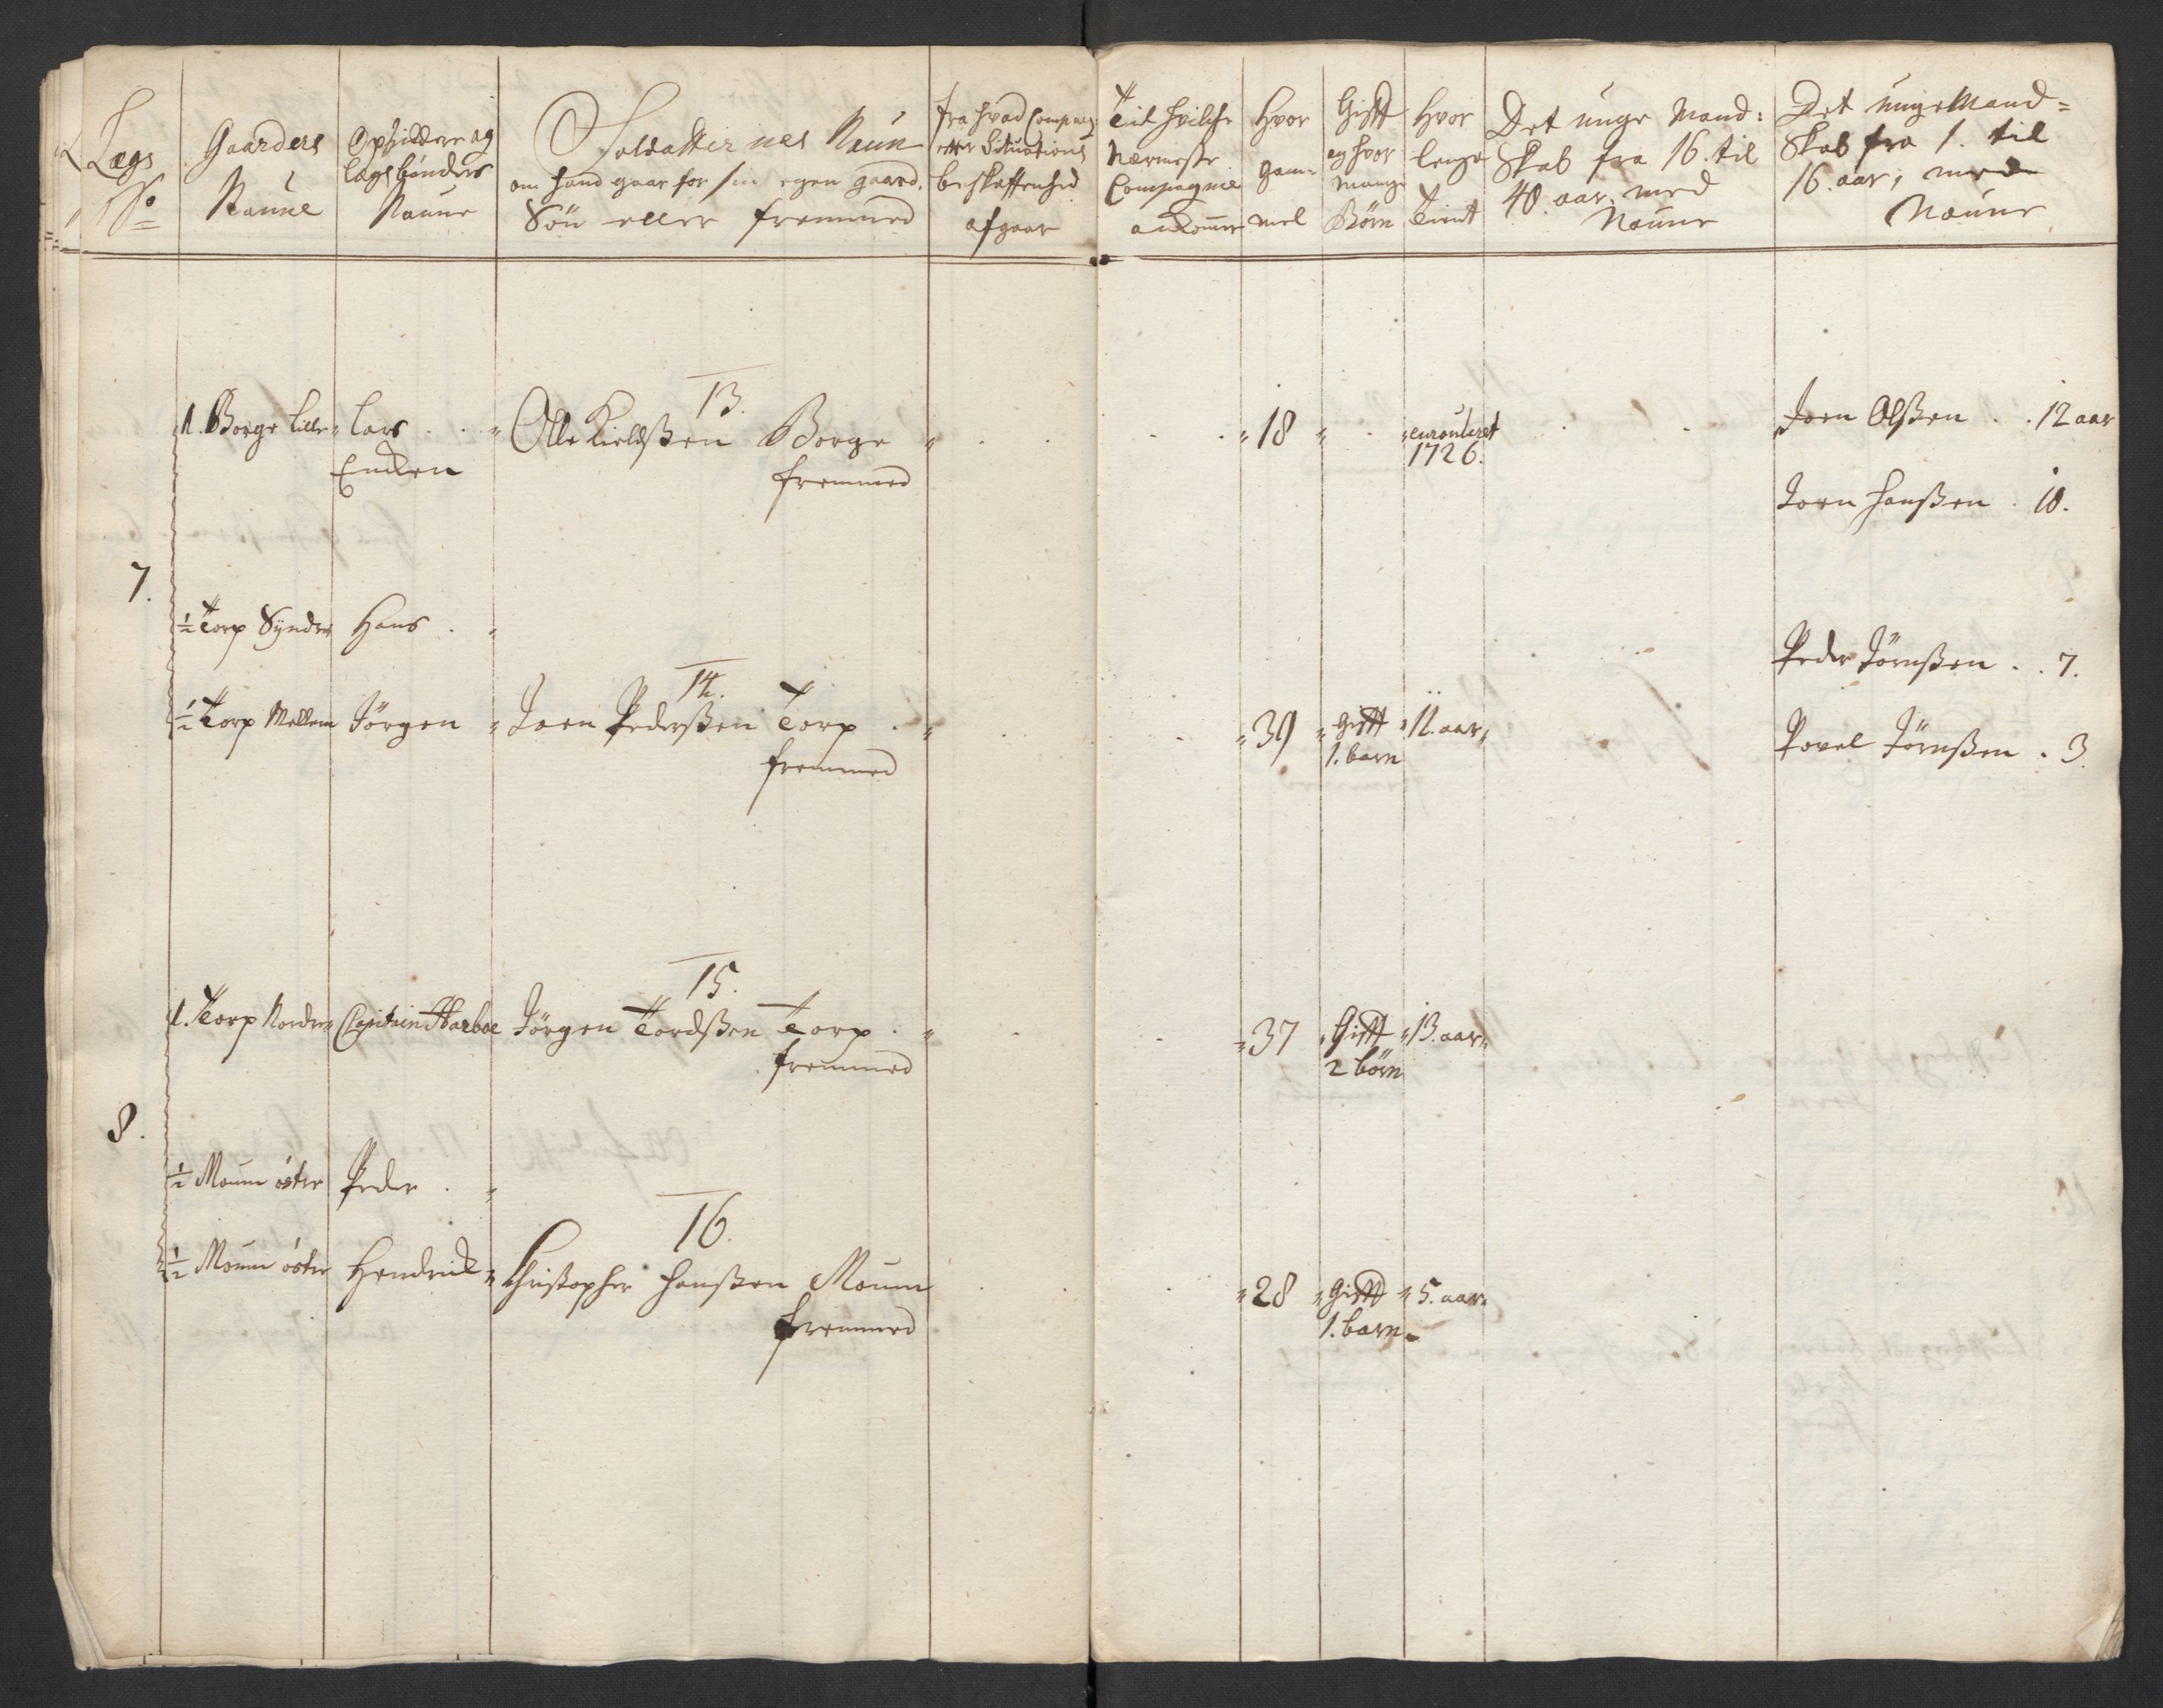 Lægs
No
Gaarders
Naune
Opsiddere og
lægsbønders
Naune
Soldatternes Naun
om hand gaar for sin egen gaard,
Sön eller fremmed
fra hvad Compag
eller Situations
beskaffenhed
afgaar
Til hvilche
Nærmeste
Compagnie
ankommer
Hvor
gam-
mel
Gifft
og hvor
mange
Börn
Hvor
lenge
tient
Det unge Mand:
Skab fra 16. til
40. aar, med
Naune
Det unge Mand=
Skab fra 1. til
16. aar, med
Naune
7.
1. Borge lille
Lars
Encken
13.
Olle Kieldßen Borge
fremmed
18
enroulleret
1726.
Joen Olßen . . 12 aar
Joen Hanßen . 10.
½ Torp Syndre
Hans
Peder Jörnßen . . 7.
½ Torp Mellem
Jörgen
14.
Joen Pederßen Torp
fremmed
39
Gifft
1. barn
11. aar
Povel Jörnßen . 3.
8.
1. Torp Nordre
Capitain Harboe
15.
Jörgen Tordßen Torp
fremmed
37
Gifft
2 börn
13. aar
½ Moum öster
Peder
½ Moum öster
Hendrick
16.
Christopher Hanßen Moum
fremmed
28
Gifft
1. barn
5. aar